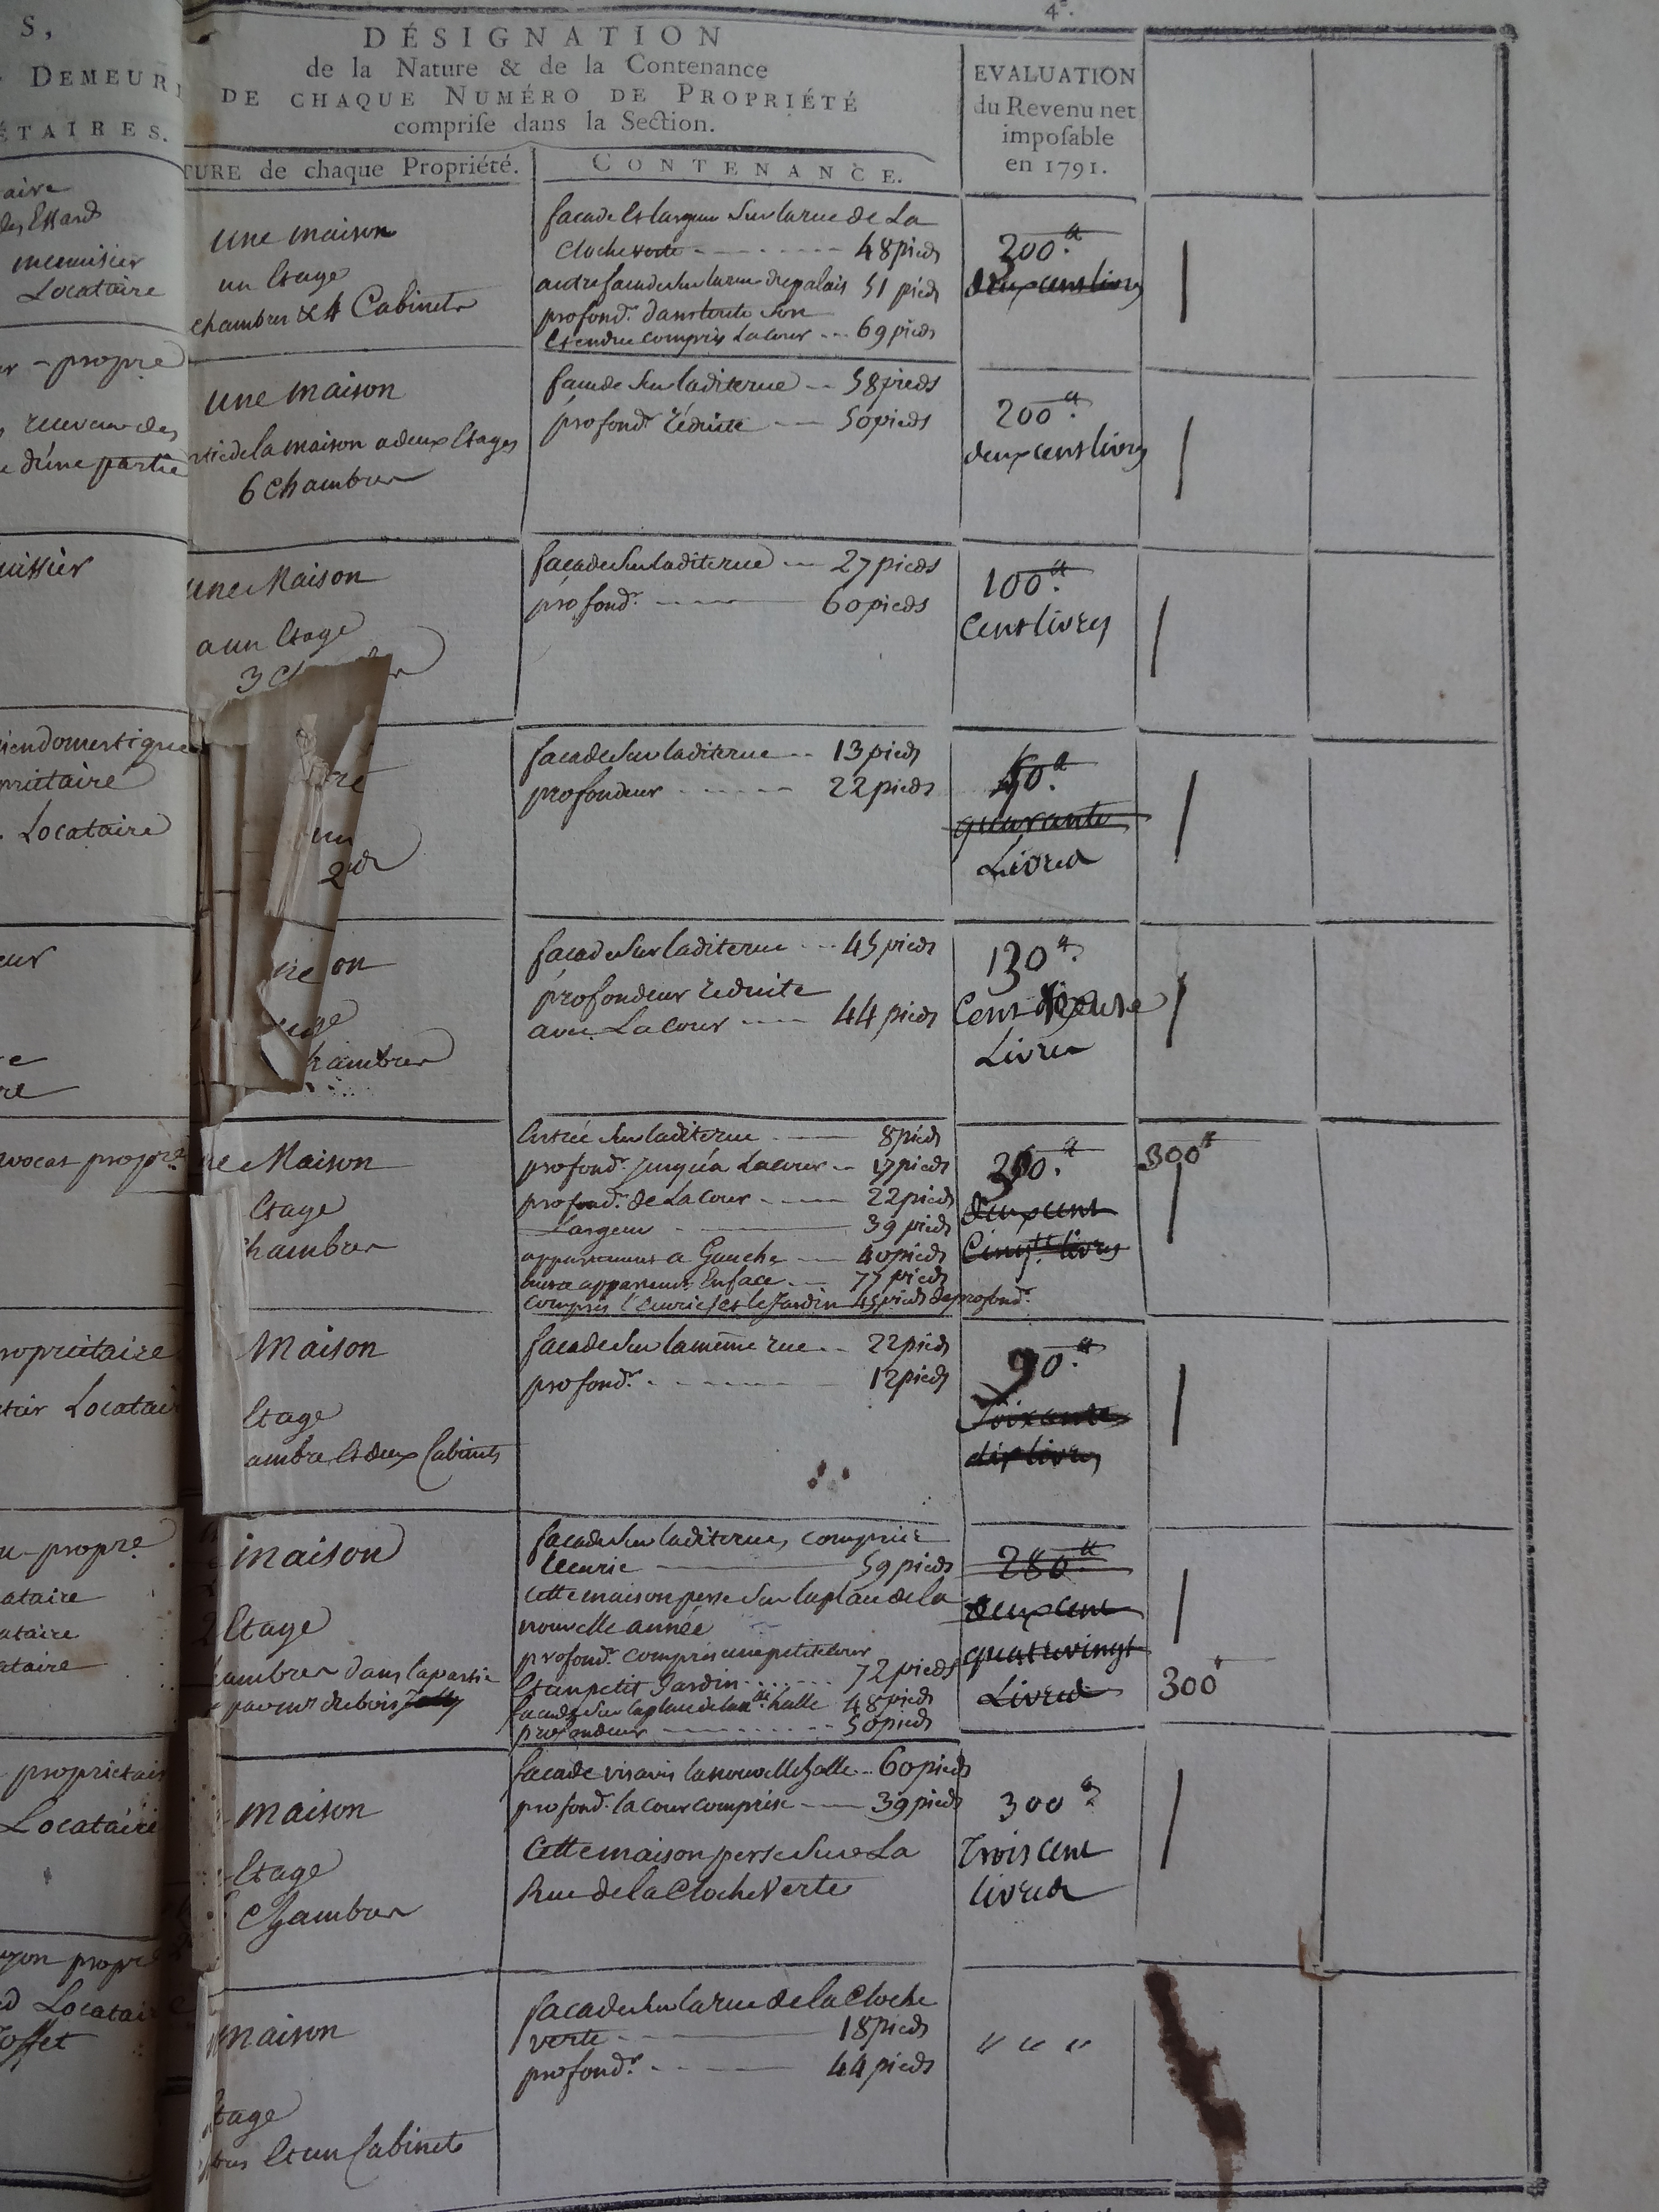 4e.
S,
DEMEUR
ÉTAIRES.
DÉSIGNATION
de la Nature & de la Contenance
DE CHAQUE NUMÉRO DE PROPRIÉTÉ
comprise dans la Section.
TURE de chaque Propriété.
CONTENANCE.
EVALUATION
du Revenu net
imposable
en 1791.
aire
des Essards
menuisier
Locataire
une maison
un Etage
chambres & 4 Cabinets
facade Et largeur Sur la rue de La
Cloche verte - - - 48 pieds
autre facade Sur la rue du palais 51 pieds
profond.r dans toute Son
Etendue compris La Cour - - - 69 pieds
200.tt
deux cens livres
r - propre
receveur des
d'une partie
une maison
rtie de la maison a deux Etages
6 chambres
facade Sur la dite rue - - 58 pieds
profond.r réduite - - 50 pieds
200.tt
deux cens livres
uissier
une Maison
a un Etage
3 Ch
facade Sur la dite rue - - 27 pieds
profond.r - - - 60 pieds
100.tt
Cens livres
ien domestique
priétaire
Locataire
un
facade Sur la dite rue - - 13 pieds
profondeur - - - 22 pieds
40.tt
quarante
Livres
eur
re
on
hambres
facade Sur la dite rue - - - 45 pieds
profondeur reduite
avec La Cour - - - 44 pieds
130.tt
Cent trente
Livres
avocat propre
ne Maison
Etage
hambres
Entrée Sur la dite rue - - 8 pieds
profond.r jusqu'a La Cour - - 17 pieds
profond.r de La Cour - - - 22 pieds
Largeur - - - 39 pieds
appartement a Gauche - - 40 pieds
autre appartement En face - - 77 pieds
compris l'Ecurie Et le Jardin 45 pieds de profond.r
300.tt
deux cent
Cinq.te livres
300tt
ropriétaire
Locatair
Maison
Etage
ambre Et deux Cabinets
facade Sur la même rue - - 22 pieds
profond.r - - - 12 pieds
90.tt
Soixante
dix livres
propre
ataire
ataire
ataire
maison
2 Etage
ambres dans la partie
facade Sur la dite rue, comprise
l'Ecurie - - - 59 pieds
Cette maison perse Sur la place de la
nouvelle année
profond.r compris une petite Cour
Et un petit Jardin - - - 72 pieds
facade Sur la place de la n.lle halle 48 pieds
profondeur - - - 50 pieds
280.tt
deux cent
quatre vingt
Livres
300tt
propriétair
Locataire
maison
Etage
Chambres
facade vis avis la nouvelle halle - - 60 pieds
profond.r la cour comprise - - 39 pieds
Cette maison perse Sur La
Rue de la Cloche Verte
300tt
Trois Cent
livres
propre
Locataire
maison
tage
Et un Cabinet
facade Sur la rue de la Cloche
verte - - - 18 pieds
profond.r - - - 44 pieds
" " "